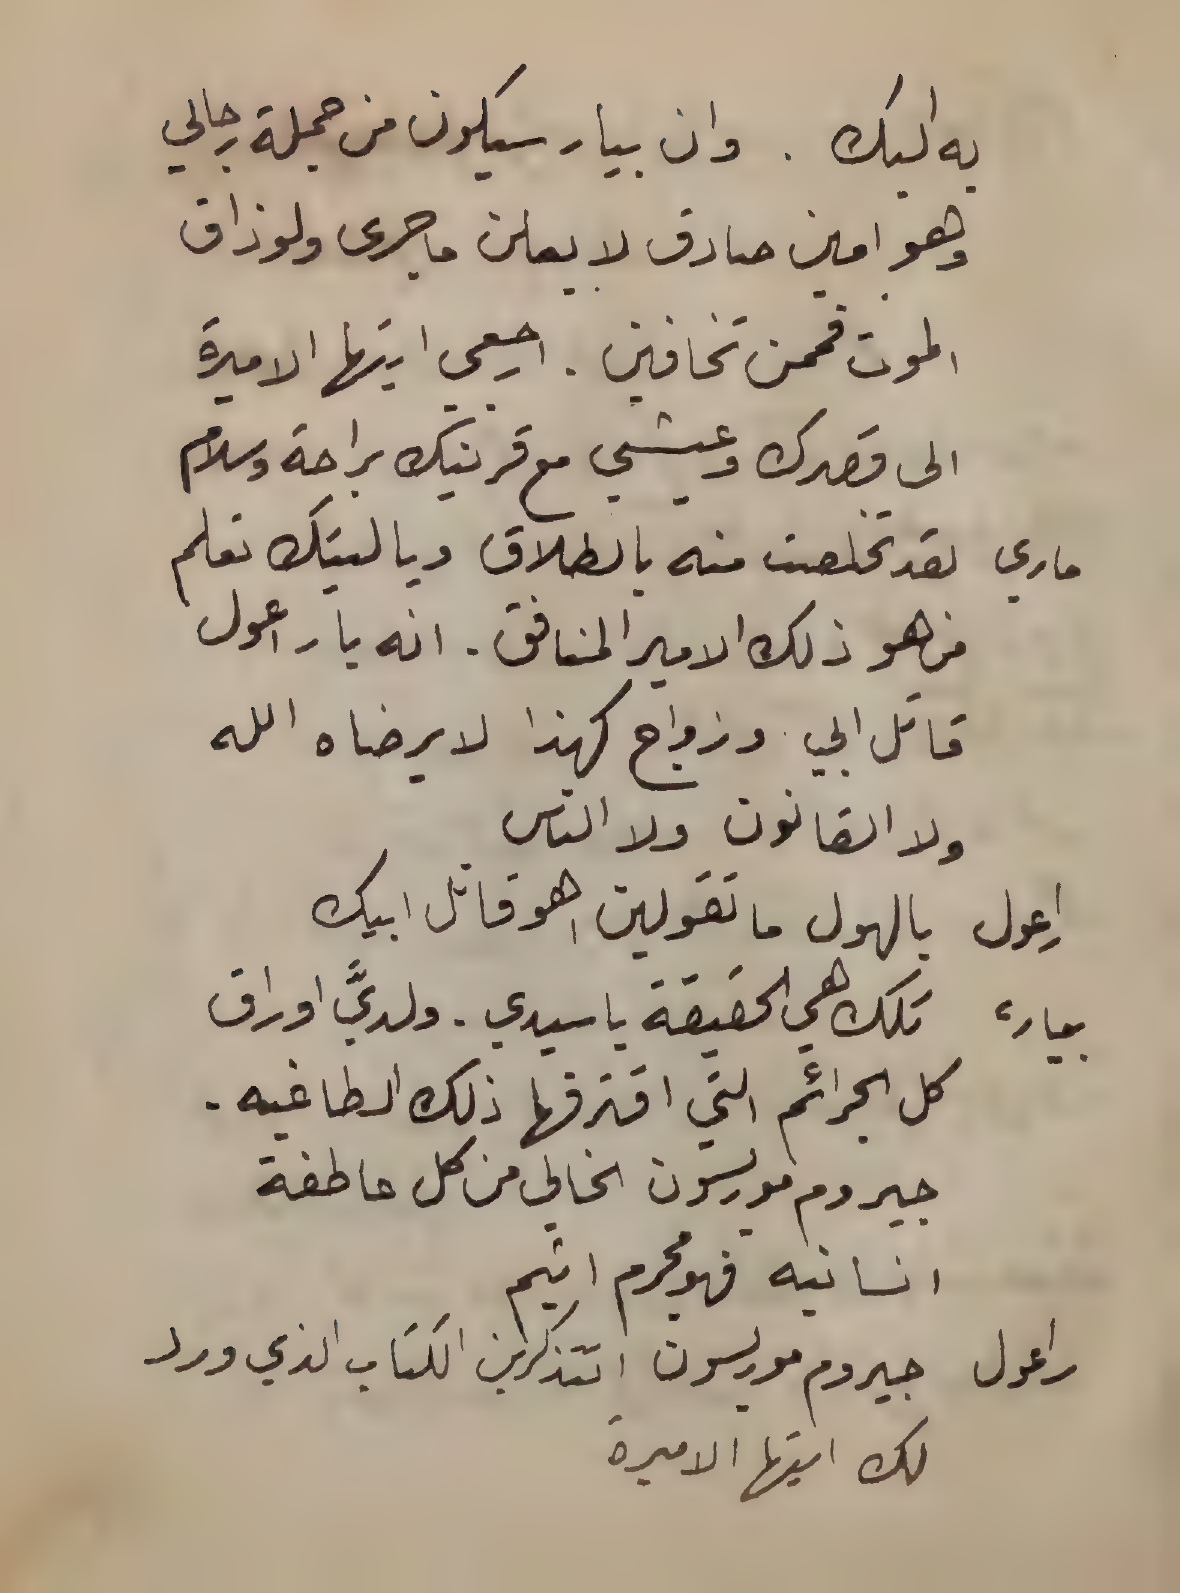 به اليك . وان بيار سيكون من جملة رجالي
وهو امين صادق لا يعلن ما جرى ولو ذاق
الموت فممن تخافين . ارجعي ايتها الاميرة
الى قصرك وعيشي مع قرينك براحة وسلام
ماري لقد تخلصت منه بالطلاق ويا ليتك تعلم
من هو ذلك الامير المنافق . انه يا راعول
قاتل ابي . وزواج كهذا لا يرضاه الله
ولا القانون ولا الناس
راعول يا لهول ما تقولين اهو قاتل ابيك
بيار تلك هي الحقيقة يا سيدي . ولديَّ اوراق
كل الجرائم التي اقترفها ذلك الطاغيه .
جيروم موريسون الخالي من كل عاطفة
انسانيه فهو مجرم اثيم
راعول جيروم موريسون اتتذكرين الكتاب الذي ورد
لك ايتها الاميرة